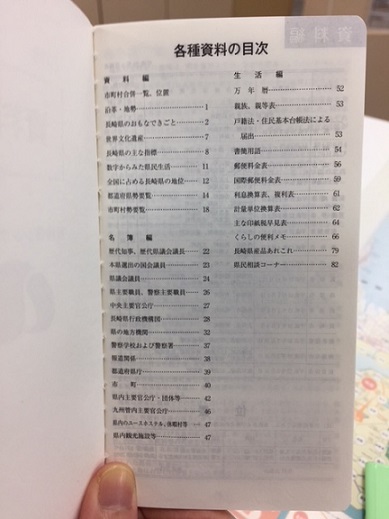 各種資料の目次
資料編
市町村合併一覧、位置
沿革・地勢 1
長崎県のおもなできごと 2
世界文化遺産 7
長崎県の主な指標 8
数字からみた県民生活 11
全国に占める長崎県の地位 12
都道府県勢要覧 14
市町村勢要覧 18
名簿編
歴代知事、歴代県議会議長 22
本県選出の国会議員 23
県議会議員 24
県主要職員、警察主要職員 26
中央主要官公庁 27
長崎県行政機構図 28
県の地方機関 32
警察学校および警察署 37
報道関係 38
都道府県庁 39
市町 40
県内主要官公庁・団体等 42
九州管内主要官公庁 46
県内のユースホステル、休暇村等 47
県内観光施設等 47
生活編
万年暦 52
親族、親等表 53
戸籍法・住民基本台帳法による
届出 53
書簡用語 54
郵便料金表 56
国際郵便料金表 59
利息換算表、複利表 61
計量単位換算表 62
主な印紙税早見表 64
くらしの便利メモ 66
長崎県産品あれこれ 79
県民相談コーナー 82